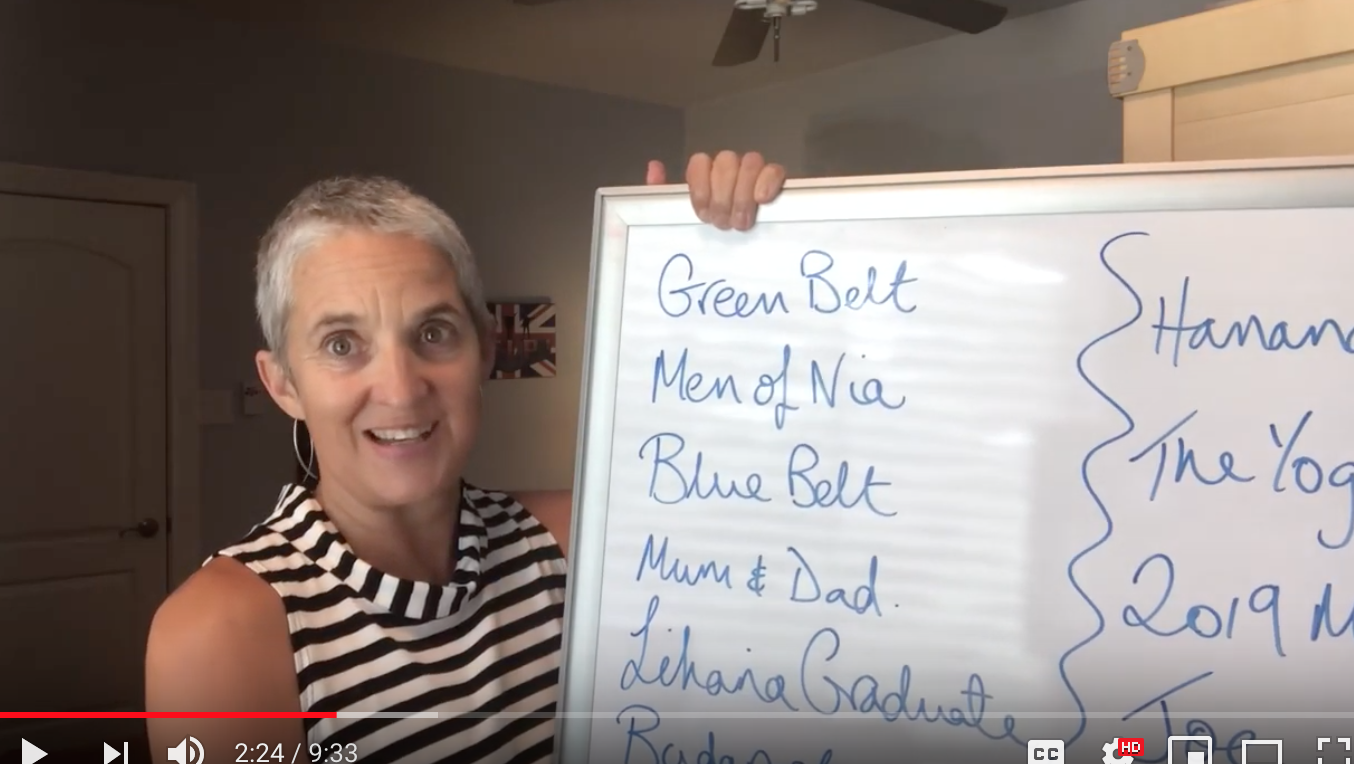 Green Belt
Men of Nia
Blue Belt
Mum & Dad.
Graduate
Hanan
The Yog
2019 M
Joe
2:24 / 9:33
CC
HD